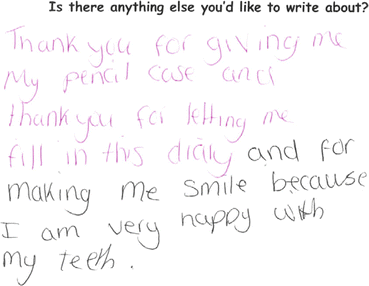 Is there anything else you'd like to write about?
Thank you for giving me
My pencil case and
thank you for letting me
fill in this diary and for
making me smile because
I am very happy with
my teeth.